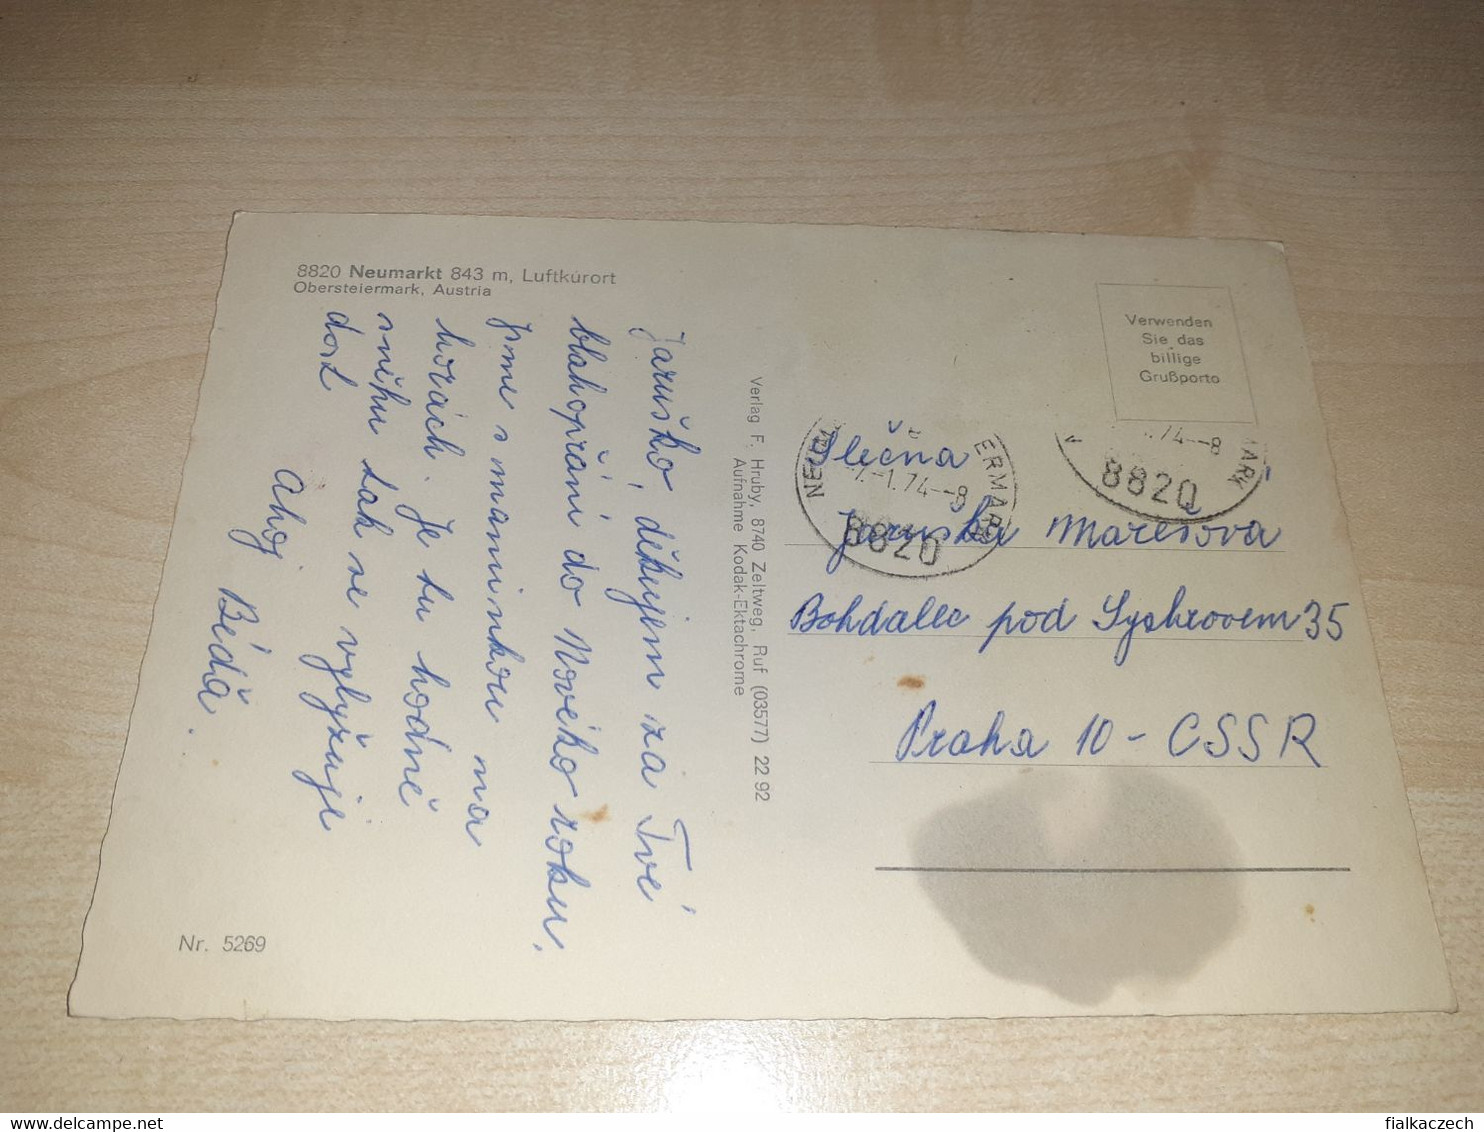 8820 Neumarkt 843 m, Luftkurort
Obersteiermark, Austria
Jaruško, děkujem za Tvé
blahopřání do Nového roku.
Jsme s maminkou na
horách. Je tu hodně
sněhu tak se vylyžuji
dost
Ahoj
Béďa.
Nr. 5269
Verlag F. Hruby, 8740 Zeltweg, Ruf (03577) 22 92
Aufnahme Kodak-Ektachrome
Verwenden
Sie das
billige
Grußporto
8820
74--8
8820
Slečna
Jaruška Marešová
Bohdalec pod Sychrovem 35
Praha 10 - ČSSR
fialkaczech